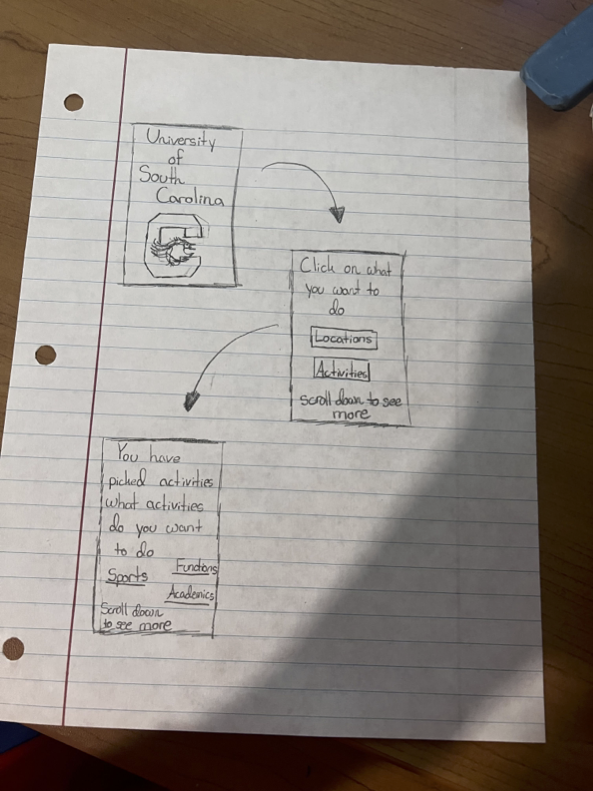 University
of
South
Carolina
Click on what
you want to
do
Locations
Activities
scroll down to see
more
You have
picked activities
what activities
do you want
to do
Sports Functions
Academics
Scroll down
to see more